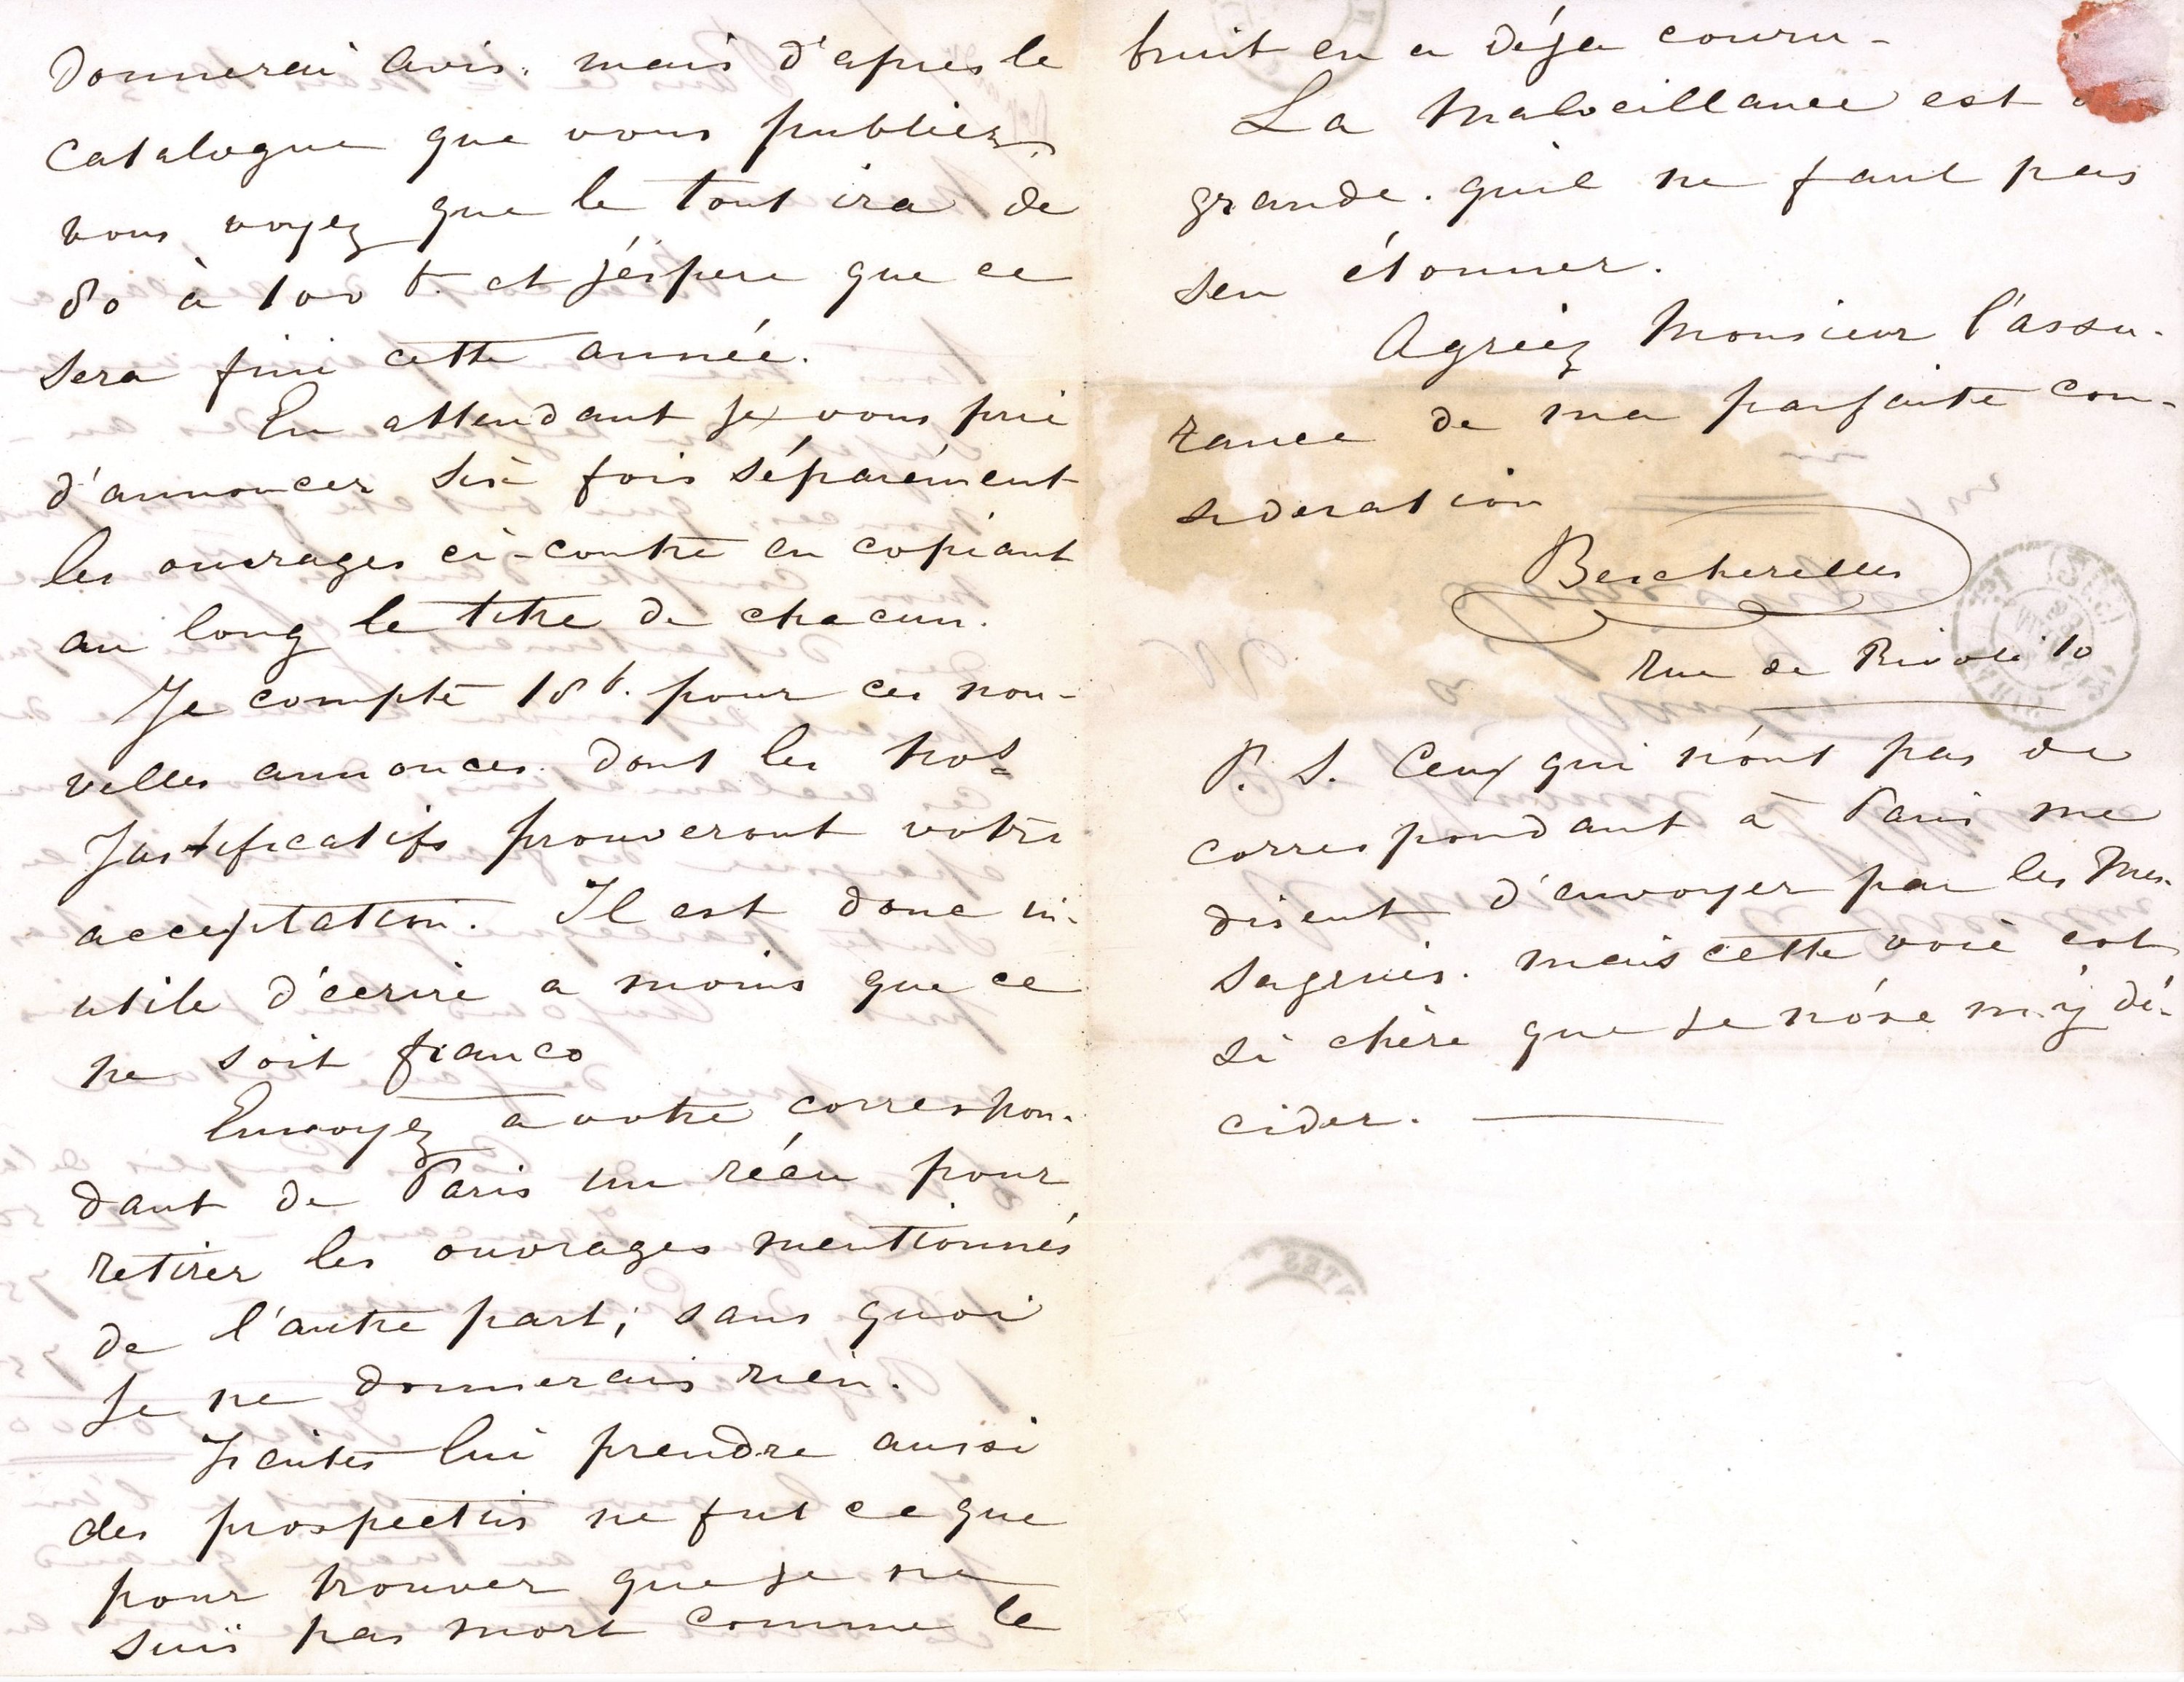 donnerai avis. mais d'apres le
catalogue que vous publiez,
vous voyez que le tout ira de
80 à 100 f. et j'éspere que ce
sera fini cette année.
En attendant je vous prie
d'annoncer six fois séparément
les ouvrages ci-contre en copiant
au long le titre de chacun.
Je compte 18 f. pour ces nou-
velles annonces dont les nos
justificatifs prouveront votre
acceptation. Il est donc in-
utile d'écrire a moins que ce
ne soit franco
Envoyez a votre correspon-
dant de Paris un réçu pour
retirer les ouvrages mentionnés
de l'autre part; sans quoi
je ne donnerais rien.
Faites lui prendre aussi
des prospectus ne fut ce que
pour prouver que je ne
suis pas mort comme le
bruit en a déja couru -
La malveillance est
grande. qu'il ne faut pas
s'en étonner.
Agréez Monsieur l'assu-
rance de ma parfaite con-
sideration
Bescherelles
rue de Rivoli 10
P. S. Ceux qui n'ont pas de
correspondant à Paris me
disent d'envoyer par les Mes-
sageries. mais cette voie est
si chère que je n'ose m'y dé-
cider.